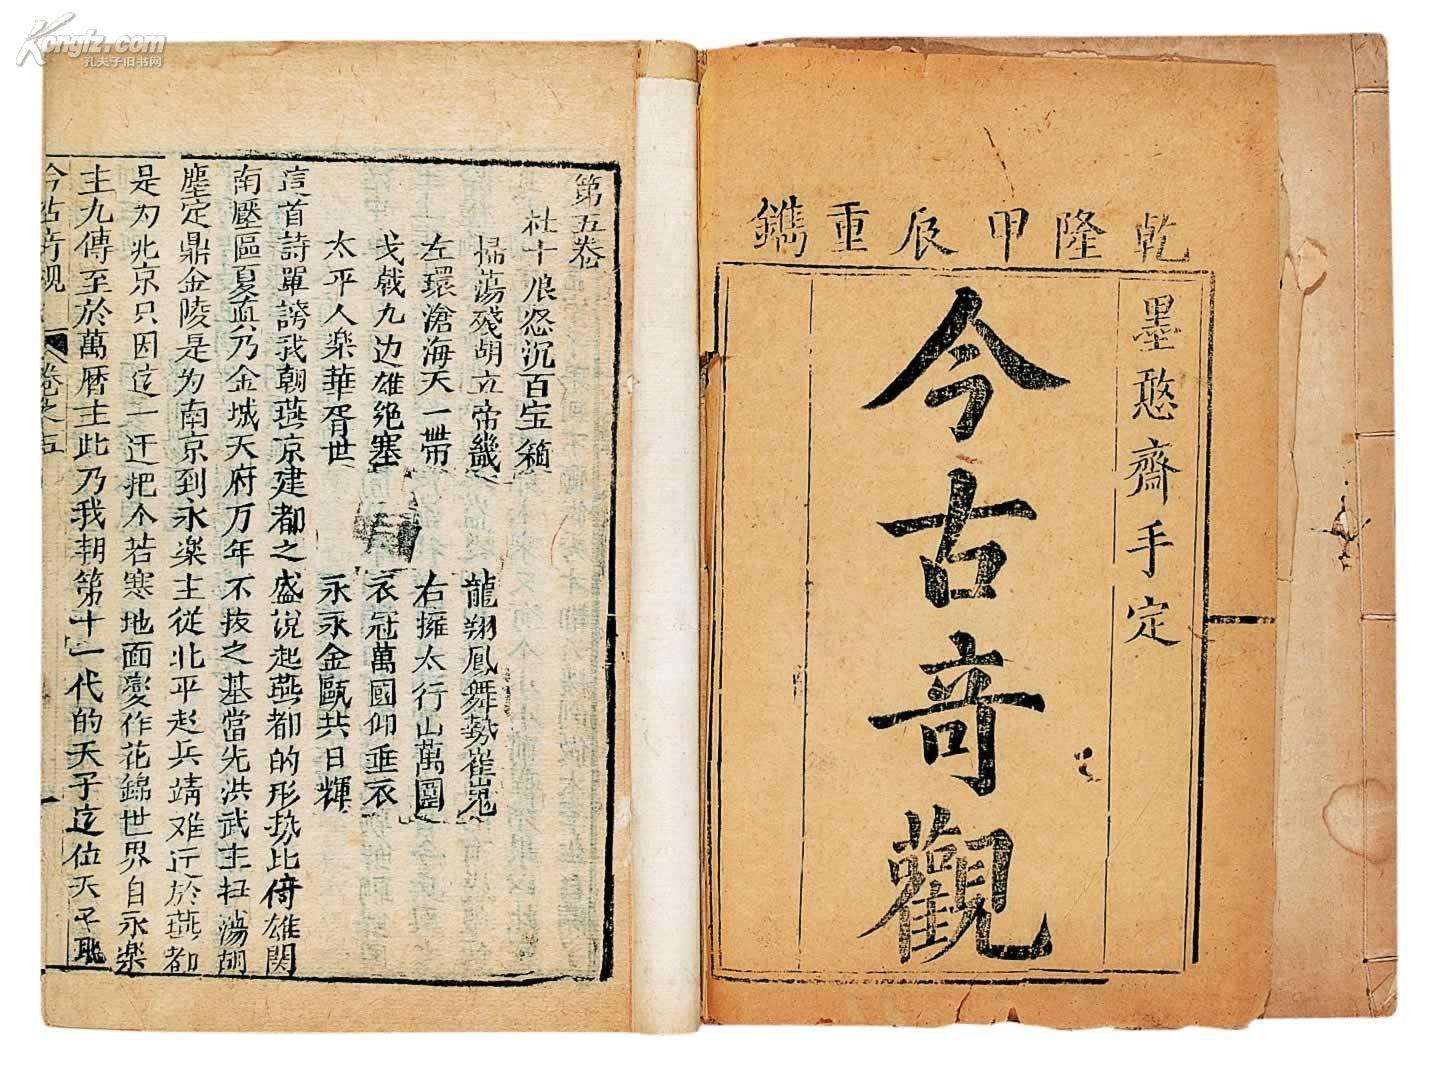 Kongfz.com
孔夫子旧书网
乾隆甲辰重鐫
墨憨齋手定
今古奇觀
第五卷
杜十娘怒沉百宝箱
掃蕩殘胡立帝畿 龍翔鳳舞勢崔嵬
左環滄海天一帶 右擁太行山萬圍
戈戟九边雄绝塞 衣冠萬國仰垂衣
太平人楽華胥世 永永金甌共日輝
這首詩單誇我朝燕京建都之盛说起燕都的形势北倚雄関
南壓區夏真乃金城天府万年不拔之基當先洪武主扫蕩胡
塵定鼎金陵是为南京到永楽主從北平起兵靖难迁於燕都
是为北京只因这一迁把个若寒地面變作花錦世界自永楽
主九傳至於萬曆主此乃我朝第十一代的天子这位天子聡
今古奇观 卷之五